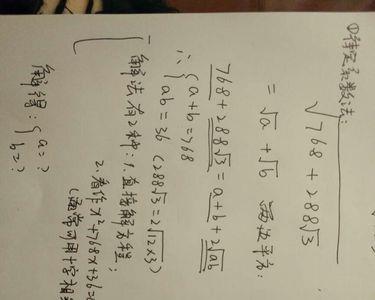 ①待定系数法:
√768+288√3
=√a+√b 两边平方:
768+288√3=a+b+2√ab
∴{a+b=768
ab=36 (288√3=2√12×3)
解法有2种:1.直接解方程;
2.看作x²+768x+36=
(通常可用十字相
解得:{a=?
b=?